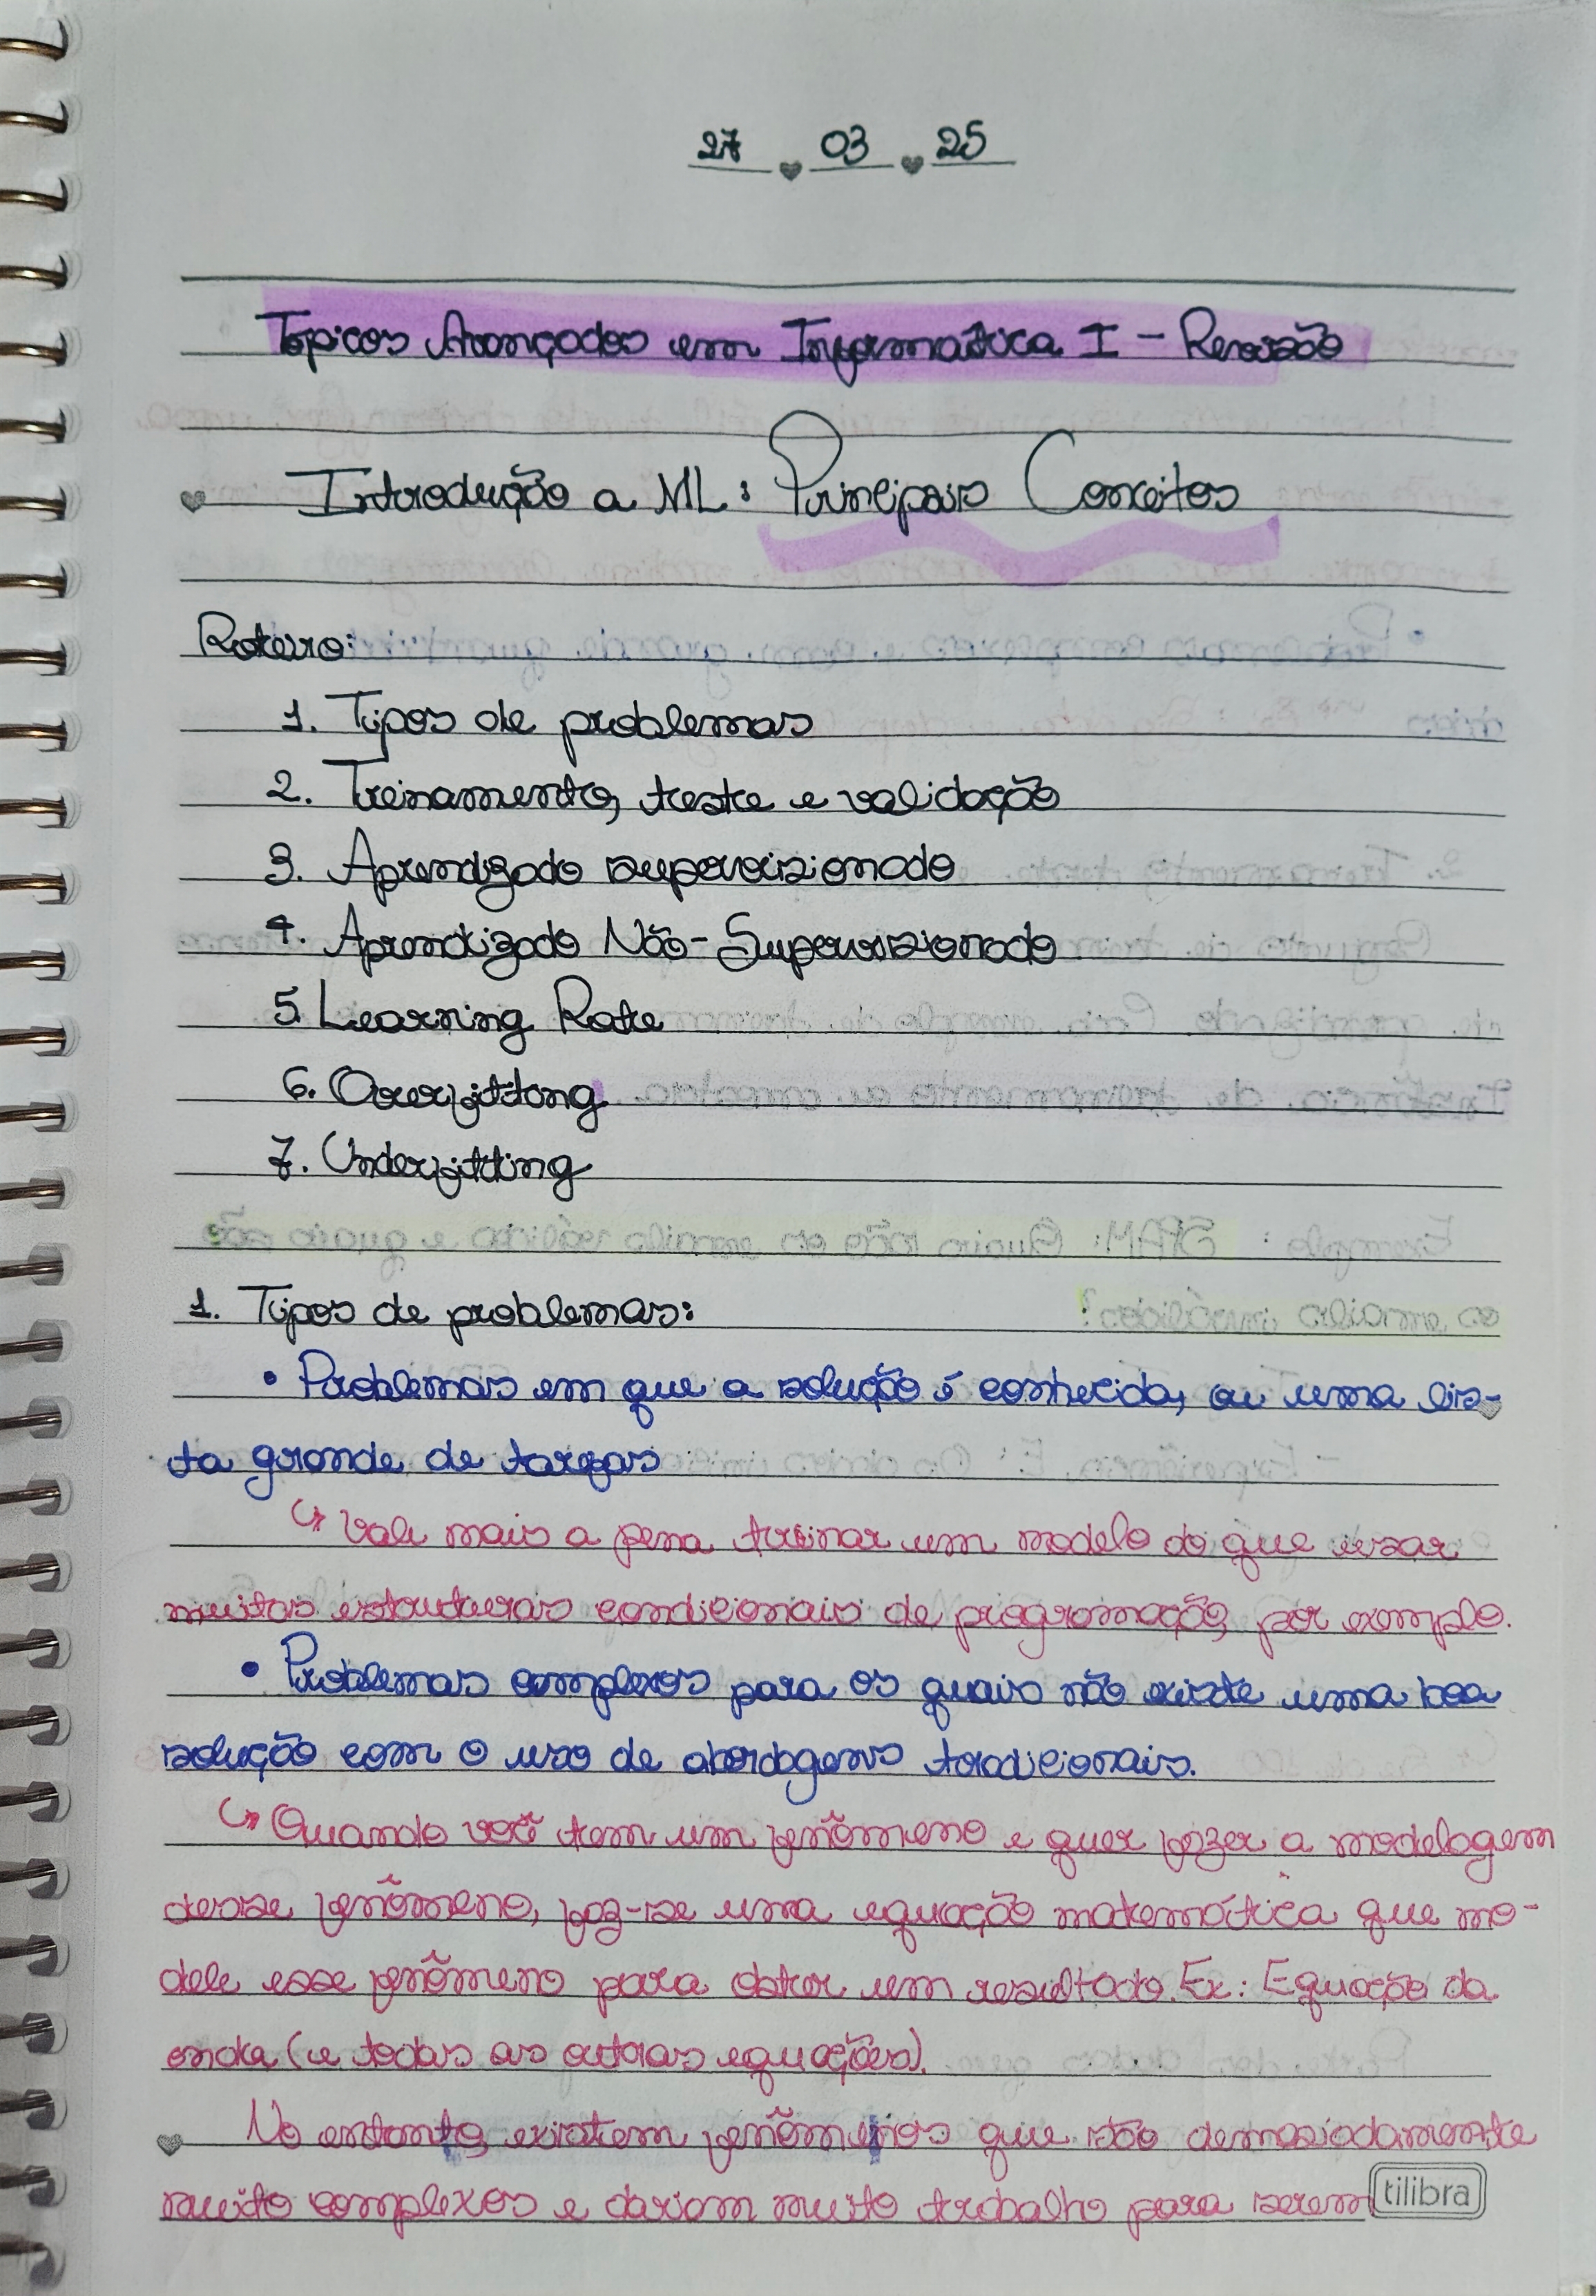 27 03 25
Tópicos Avançados em Informática I - Revisão
Introdução a ML: Principais Conceitos
Roteiro:
1. Tipos de problemas
2. Treinamento, teste e validação
3. Aprendizado supervisionado
4. Aprendizado Não-Supervisionado
5. Learning Rate
6. Overfitting
7. Underfitting
1. Tipos de problemas:
• Problemas em que a solução é conhecida, ou uma lis-
ta grande de tarefas
↳ Vale mais a pena treinar um modelo do que usar
muitas estruturas condicionais de programação, por exemplo.
• Problemas complexos para os quais não existe uma boa
solução com o uso de abordagens tradicionais.
↳ Quando você tem um fenômeno e quer fazer a modelagem
desse fenômeno, faz-se uma equação matemática que mo-
dele esse fenômeno para obter um resultado. Ex: Equação da
onda (e todas as outras equações).
No entanto, existem fenômenos que são demasiadamente
muito complexos e dariam muito trabalho para serem
tilibra